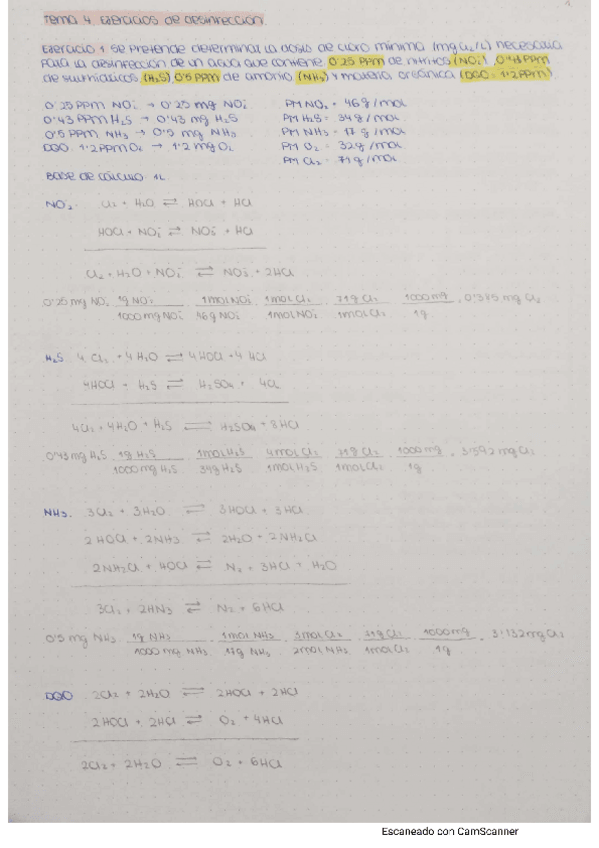 1
Tema 4. Ejercicios de desinfección.
Ejercicio 1. Se pretende determinar la dosis de cloro mínima (mg Cl₂/L) necesaria
para la desinfección de un agua que contiene 0'25 ppm de nitritos (NO₂⁻), 0'43 ppm
de sulfhídricos (H₂S), 0'5 ppm de amonio (NH₃) y materia orgánica (DQO = 1'2 ppm)
0'25 ppm NO₂⁻ → 0'25 mg NO₂⁻ PM NO₂ = 46 g/mol
0'43 ppm H₂S → 0'43 mg H₂S PM H₂S = 34 g/mol
0'5 ppm NH₃ → 0'5 mg NH₃ PM NH₃ = 17 g/mol
DQO 1'2 ppm O₂ → 1'2 mg O₂ PM O₂ = 32 g/mol
PM Cl₂ = 71 g/mol
Base de cálculo 1L
NO₂⁻ Cl₂ + H₂O ⇌ HOCl + HCl
HOCl + NO₂⁻ ⇌ NO₃⁻ + HCl
Cl₂ + H₂O + NO₂⁻ ⇌ NO₃⁻ + 2HCl
0'25 mg NO₂⁻ · 1g NO₂⁻/1000 mg NO₂⁻ · 1mol NO₂⁻/46g NO₂⁻ · 1mol Cl₂/1mol NO₂⁻ · 71g Cl₂/1mol Cl₂ · 1000mg/1g = 0'385 mg Cl₂
H₂S 4Cl₂ + 4H₂O ⇌ 4HOCl + 4HCl
4HOCl + H₂S ⇌ H₂SO₄ + 4Cl
4Cl₂ + 4H₂O + H₂S ⇌ H₂SO₄ + 8HCl
0'43 mg H₂S · 1g H₂S/1000 mg H₂S · 1mol H₂S/34g H₂S · 4mol Cl₂/1mol H₂S · 71g Cl₂/1mol Cl₂ · 1000mg/1g = 3'592 mg Cl₂
NH₃ 3Cl₂ + 3H₂O ⇌ 3HOCl + 3HCl
2HOCl + 2NH₃ ⇌ 2H₂O + 2NH₂Cl
2NH₂Cl + HOCl ⇌ N₂ + 3HCl + H₂O
3Cl₂ + 2HN₃ ⇌ N₂ + 6HCl
0'5 mg NH₃ · 1g NH₃/1000 mg NH₃ · 1mol NH₃/17g NH₃ · 3mol Cl₂/2mol NH₃ · 71g Cl₂/1mol Cl₂ · 1000mg/1g = 3'132 mg Cl₂
DQO 2Cl₂ + 2H₂O ⇌ 2HOCl + 2HCl
2HOCl + 2HCl ⇌ O₂ + 4HCl
2Cl₂ + 2H₂O ⇌ O₂ + 6HCl
Escaneado con CamScanner